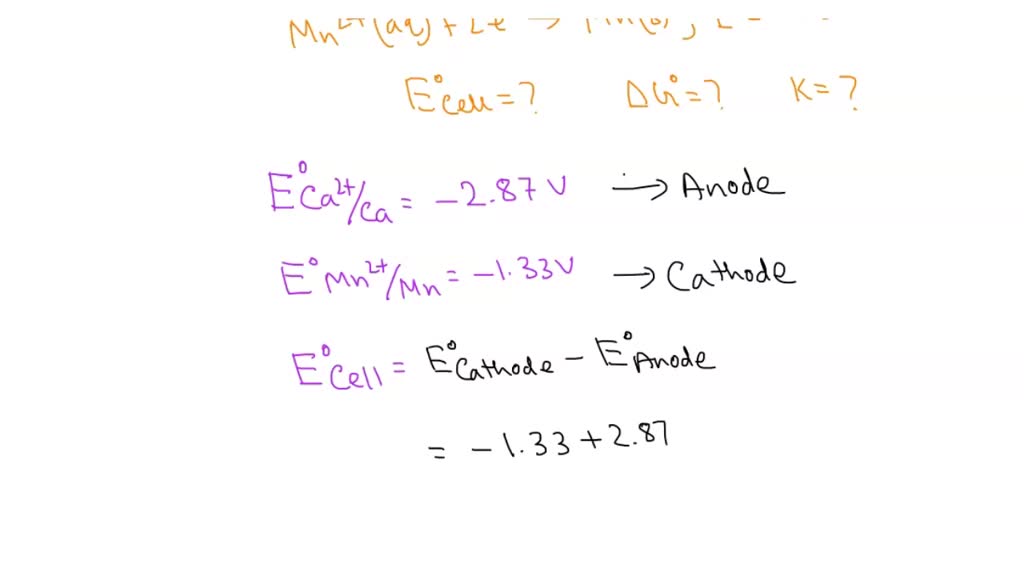 Mn²⁺(aq) + 2e → Mn(s),
E°cell = ? ΔG° = ? K = ?
E°Ca²⁺/Ca = -2.87 V → Anode
E°Mn²⁺/Mn = -1.33V → Cathode
E°Cell = E°Cathode - E°Anode
= -1.33 + 2.87